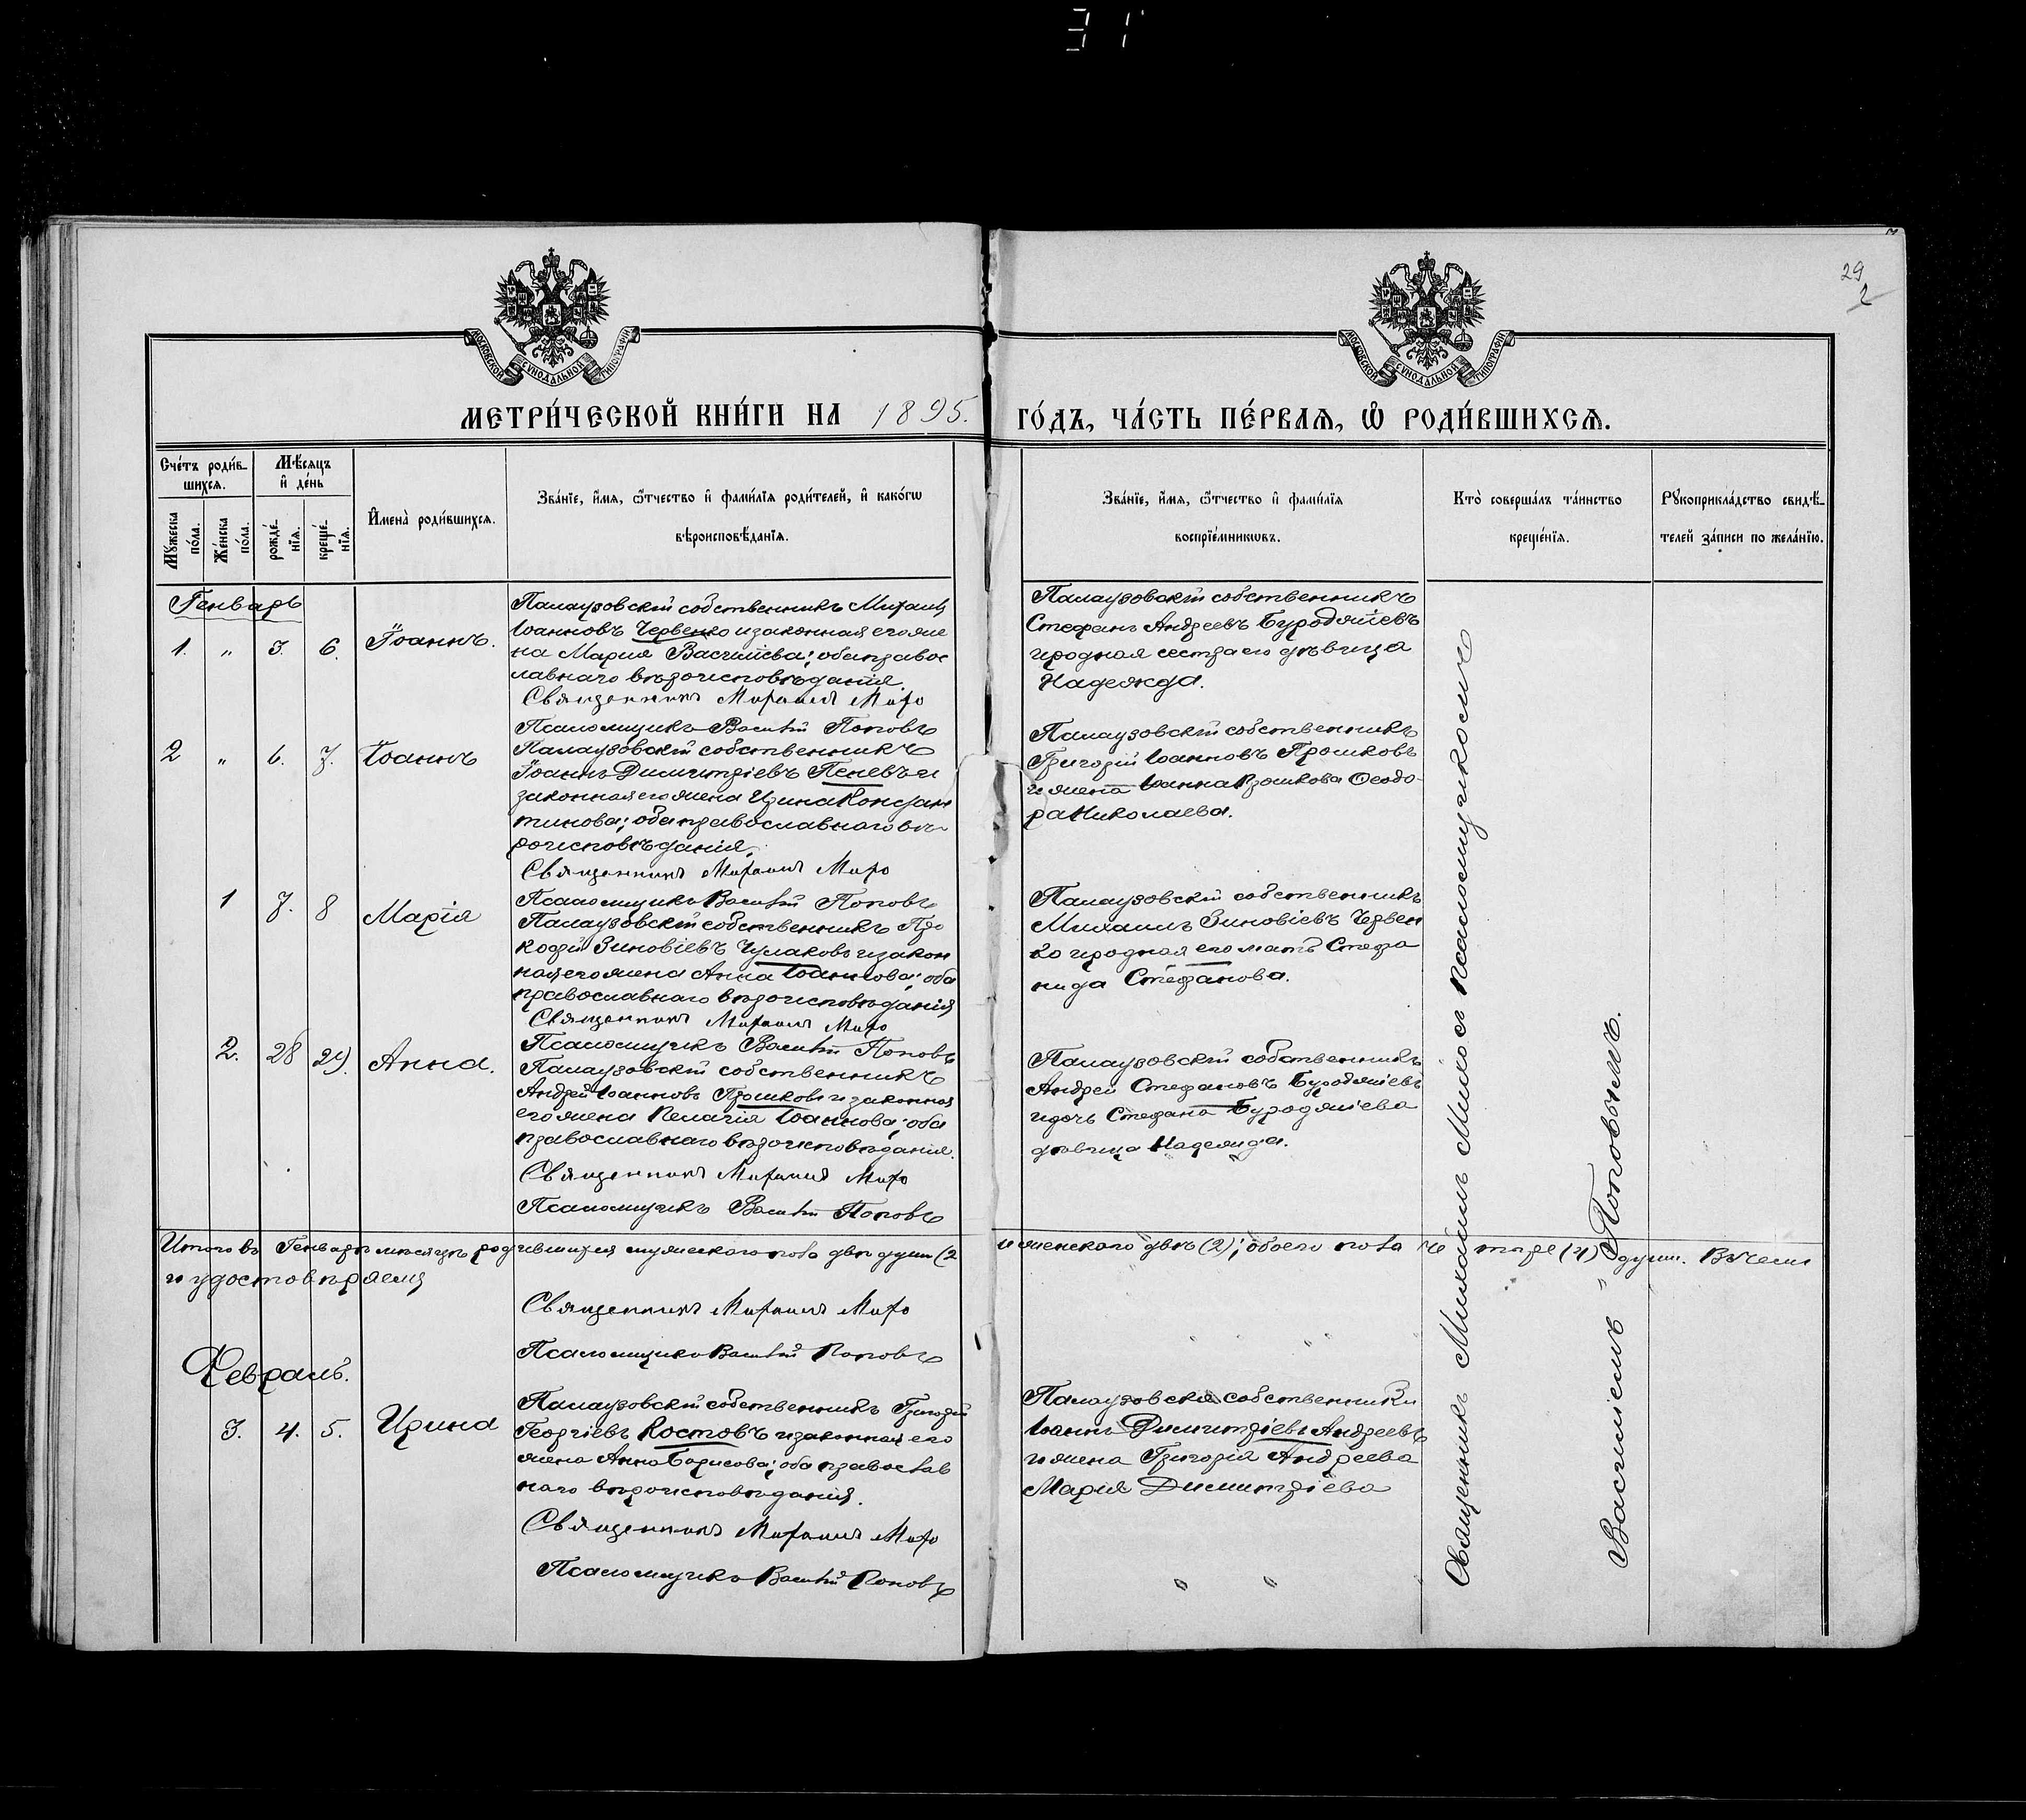 31
29
2
МОСКОВСКОЙ СѴНОДАЛЬНОЙ ТИПОГРАФІИ
МОСКОВСКОЙ СѴНОДАЛЬНОЙ ТИПОГРАФІИ
МЕТРИ́ЧЕСКОЙ КНИ́ГИ НА 1895. ГО́ДЪ, ЧА́СТЬ ПЕ́РВАѦ, Ѡ҆ РОДИ́ВШИХСѦ.
Сче́тъ роди́в-
шихсѧ.
Мѣ́сѧцъ
и҆ де́нь
Мꙋ́жеска по́ла.
Же́нска по́ла.
рожде́-нїѧ.
креще́-нїѧ.
И҆мена̀ роди́вшихсѧ.
Зва́нїе, и҆́мѧ, ѻ҆́тчество и҆ фами́лїѧ роди́телей, и҆ како́гѡ
вѣроисповѣ́данїѧ.
Зва́нїе, и҆́мѧ, ѻ҆́тчество и҆ фами́лїѧ
воспрїе́мникѡвъ.
Кто̀ соверша́лъ та́инство
креще́нїѧ.
Рꙋкоприкла́дство свидѣ́-
телей за́писи по жела́нїю.
Генварь
1. " 3. 6. Іоаннъ.
Палаузовскій собственникъ Михаилъ
Іоанновъ Червенко и законная его же
на Марія Васильева; оба правос
лавнаго вѣроисповѣданія.
Священникъ Михаилъ
Псаломщикъ Василій Поповъ
Палаузовскій собственникъ
Стефанъ Андреевъ Буроджіевъ
и родная сестра его дѣвица
Надежда.
2 " 6. 7. Іоаннъ
Палаузовскій собственникъ
Іоаннъ Димитріевъ Пеневъ и
законная его жена Ирина Констан
тинова; оба православнаго вѣ-
роисповѣданія.
Священникъ Михаилъ
Псаломщикъ Василій Поповъ
Палаузовскій собственникъ
Григорій Іоанновъ Прошковъ
и жена Іоанна Прошкова Ѳеодо-
ра Николаева.
1 7. 8 Марія
Палаузовскій собственникъ Про
кофій Зиновіевъ Чулаковъ и закон
ная его жена Анна Іоаннова; оба
православнаго вѣроисповѣданія
Священникъ Михаилъ
Псаломщикъ Василій Поповъ
Палаузовскій собственникъ
Михаилъ Зиновіевъ Червен
ко и родная его мать Стефа
нида Стефанова.
2. 28 29. Анна.
Палаузовскій собственникъ
Андрей Іоанновъ Прошковъ и законная
его жена Пелагія Іоаннова; оба
православнаго вѣроисповѣданія.
Священникъ Михаилъ
Псаломщикъ Василій Поповъ
Палаузовскій собственникъ
Андрей Стефановъ Буроджіевъ
и дочь Стефана Буроджіева
дѣвица Надежда.
Итого въ Генварѣ мѣсяцѣ родившихся мужескаго пола двѣ души (2
и женскаго двѣ (2); обоего пола четыре (4) души. Въ чемъ
и удостовѣряемъ
Священникъ Михаилъ
Псаломщикъ Василій Поповъ
Февраль.
3. 4. 5. Ирина
Палаузовскій собственникъ Григорій
Георгіевъ Костовъ и законная его
жена Анна Борисова; оба православ
наго вѣроисповѣданія.
Священникъ Михаилъ
Псаломщикъ Василій Поповъ
Палаузовскіе собственники
Іоаннъ Димитріевъ Андреевъ
и жена Григорія Андреева
Марія Димитріева
Священникъ Михаилъ съ псаломщикомъ
Василіемъ Поповымъ.